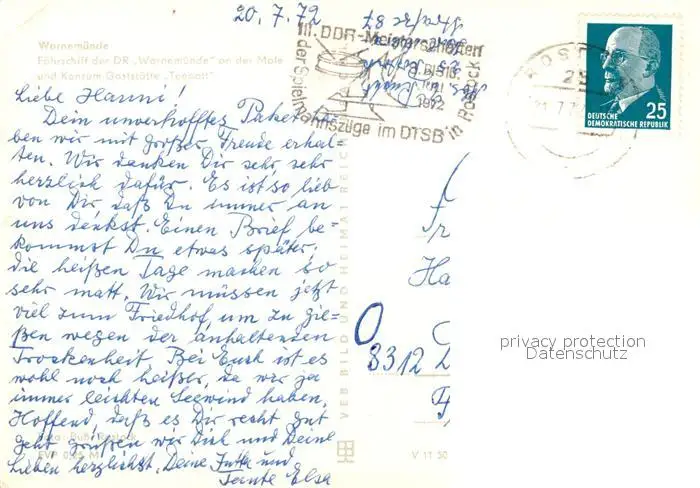 20.7.72
Warnemünde
Fährschiff der DR „Warnemünde" an der Mole
und Konsum Gaststätte „Teepott"
Liebe Hanni!
Dein unverhofftes Paket ha-
ben wir mit großer Freude erhal-
ten. Wir danken Dir sehr, sehr
herzlich dafür. Es ist so lieb
von Dir, daß Du immer an
uns denkst. Einen Brief be-
kommst Du etwas später,
die heißen Tage machen so
sehr matt. Wir müssen jetzt
viel zum Friedhof, um zu gie-
ßen wegen der anhaltenden
Trockenheit. Bei Euch ist es
wohl noch heißer, da wir ja
immer leichten Seewind haben.
Hoffend, daß es Dir recht gut
geht grüßen wir Dich und Deine
Lieben herzlichst. Deine Jutta und
Tante Elsa
EVP 0,25 M
VEB BILD UND HEIMAT REICH
V 11 50
III. DDR-Meisterschaften
der Spielmannszüge im DTSB in Rostock
1972
25
DEUTSCHE
DEMOKRATISCHE REPUBLIK
Fr
Ha
3312
privacy protection
Datenschutz